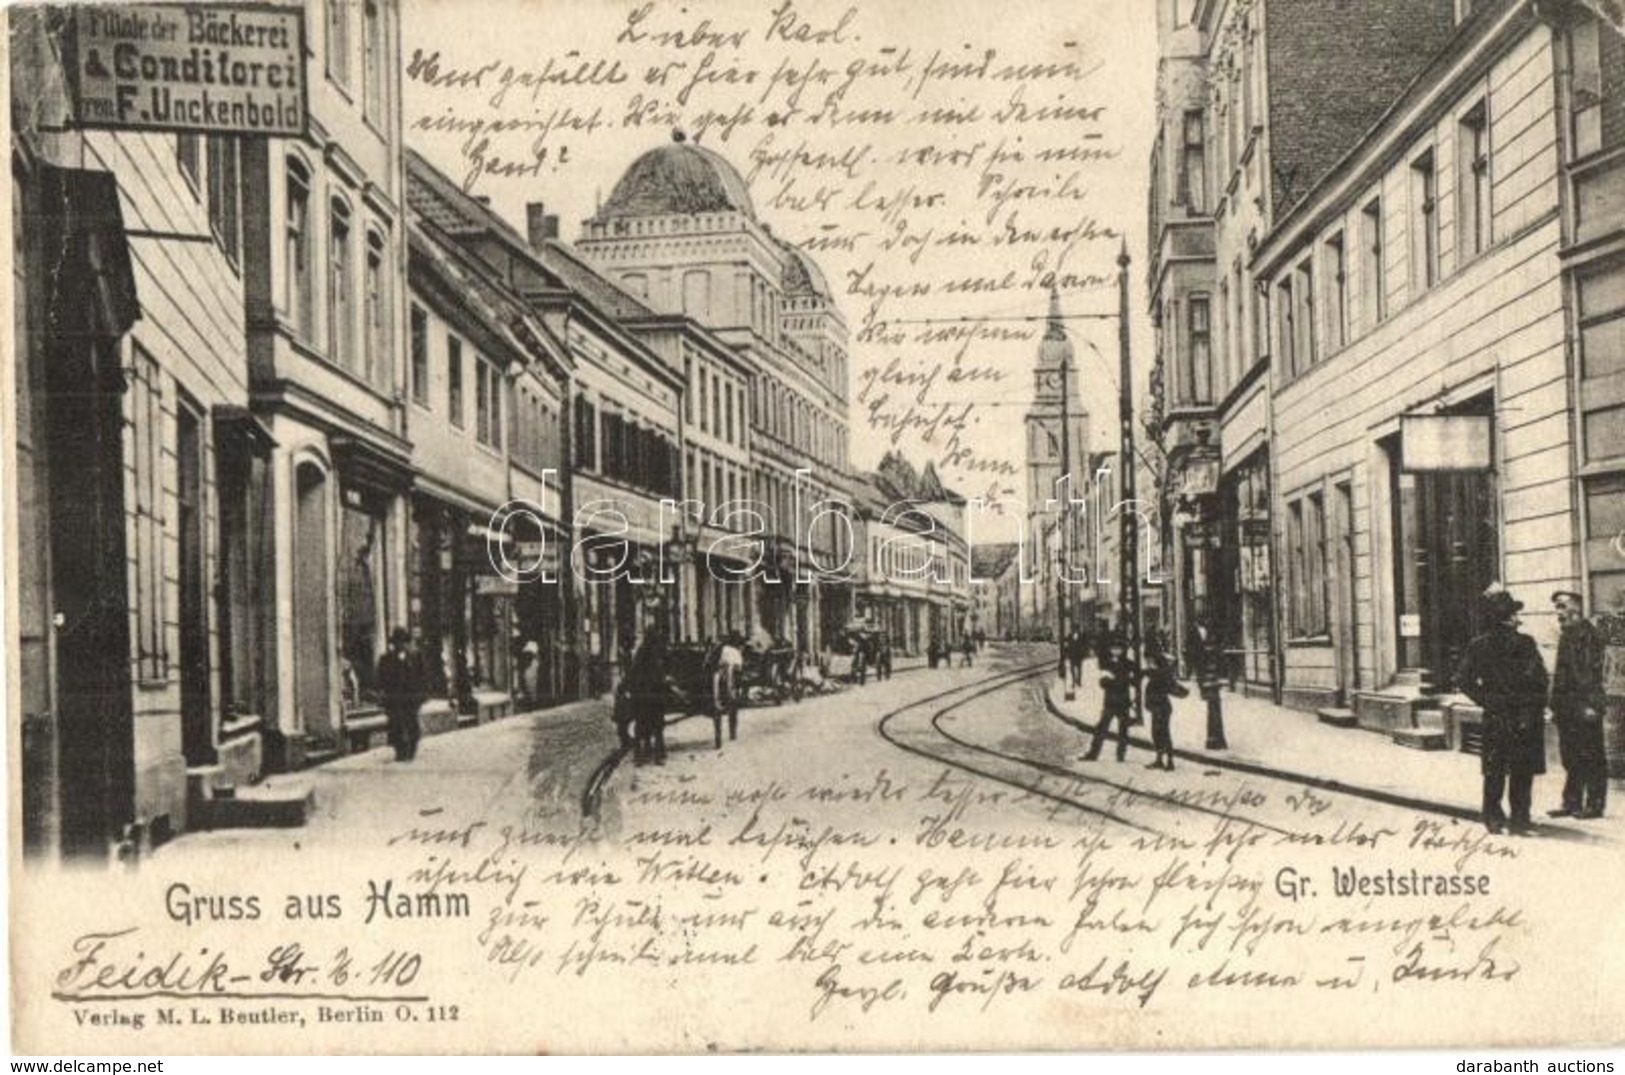 Filiale der Bäckerei
& Conditorei
von F. Unckenbold
Lieber Karl.
Uns gefällt es hier sehr gut, sind nun
eingerichtet. Wie geht es denn mit deiner
Hand? Hoffentl. wird sie nun
bald besser. Schreibe
uns doch in den ersten
Tagen mal davon.
Wir wohnen
gleich am
Bahnhof.
Wenn
du
nun erst wieder besser bist so mußt du
uns zuerst mal besuchen. Hamm ist ein sehr nettes Städchen
ähnlich wie Witten. Adolf geht hier schon fleißig
zur Schule uns auch die anderen haben sich schon eingelebt.
Also schreib mal bald eine Karte.
Herzl. Grüße Adolf Anna u. Kinder
Gruss aus Hamm
Gr. Weststrasse
Feidik-Str. N. 110
Verlag M. L. Beutler, Berlin O. 112
darabanth
darabanth auctions